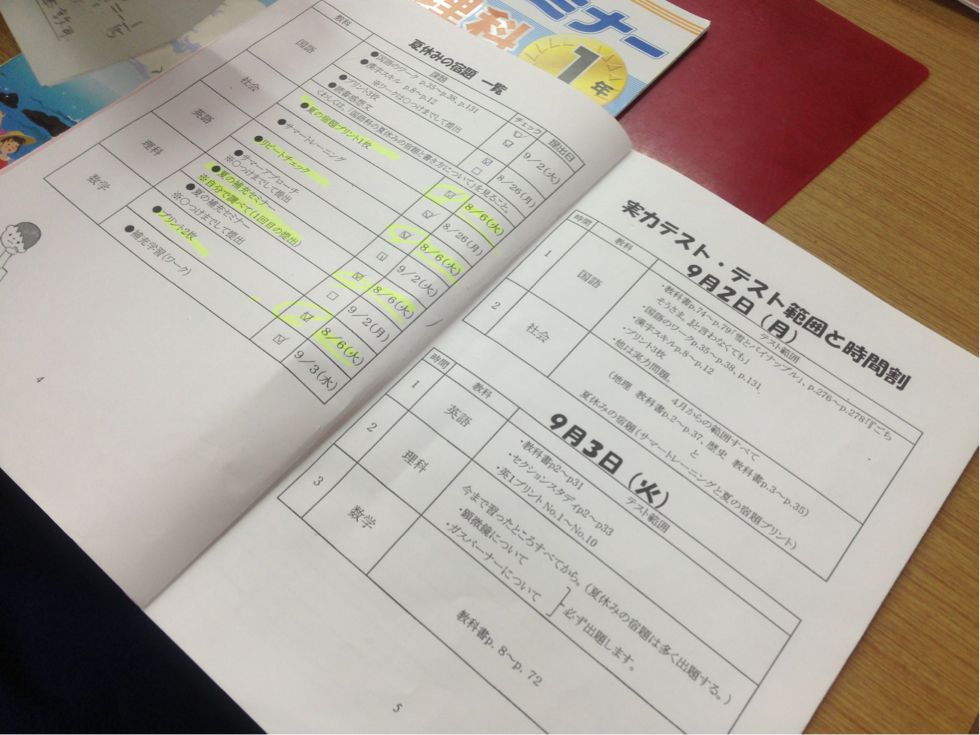 ミナー
理科
1年
夏休みの宿題 一覧
教科
課題
チェック
提出日
国語
●国語のワーク p.35~p.38, p.131
●漢字スキル p.8~p.12
※ワークは○つけまでして提出
●プリント3枚
9/2(火)
●読書感想文
くわしくは、「国語科の夏休みの宿題と書き方について」を見ること。
8/26(月)
社会
●夏の宿題プリント1枚
8/6(火)
●サマートレーニング
8/26(月)
英語
●リピートチェック
8/6(火)
●サマーアプローチ
※○つけまでして提出
9/2(火)
理科
●夏の補充セミナー
※自分で調べて(1回目の提出)
8/6(火)
●夏の補充セミナー
※○つけまでして提出
9/2(月)
数学
●プリント2枚
8/6(火)
●補充学習(ワーク)
9/3(水)
4
実力テスト・テスト範囲と時間割
9月2日(月)
時間
教科
テスト範囲
1
国語
・教科書p.74~p.79「雪とパイナップル」、p.276~p.278「『ごち
そうさま』と言わなくても」
・国語のワークp.35~p.38、p.131
・漢字スキルp.8~p.12
・プリント3枚
・他は実力問題。
2
社会
4月からの範囲すべて
(地理 教科書p.2~p.37、歴史 教科書p.3~p.35)
と
夏休みの宿題(サマートレーニングと夏の宿題プリント)
9月3日(火)
時間
教科
テスト範囲
1
英語
・教科書p2~p31
・セクションスタディp2~p33
・英1プリントNo.1~No.10
2
理科
今まで習ったところすべてから。(夏休みの宿題は多く出題する。)
・顕微鏡について
・ガスバーナーについて
必ず出題します。
3
数学
教科書p. 8~p. 72
5